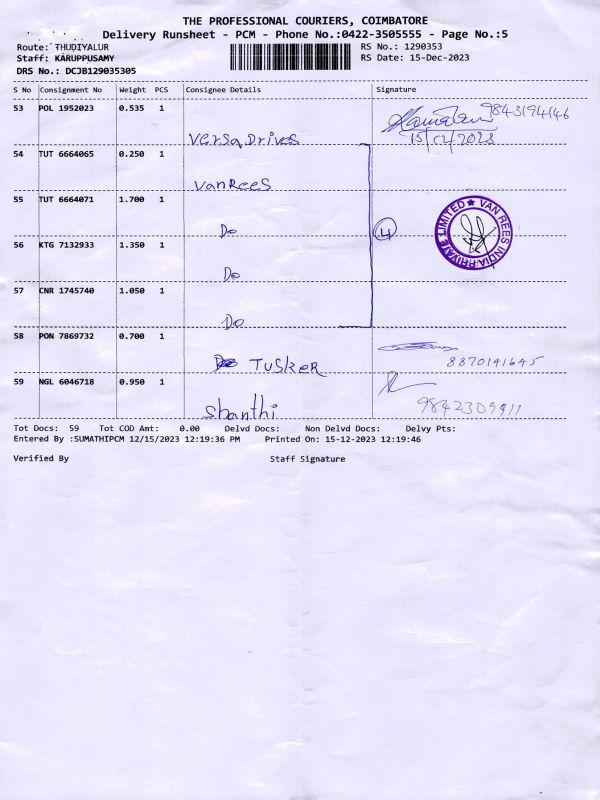 THE PROFESSIONAL COURIERS, COIMBATORE
Delivery Runsheet - PCM - Phone No.:0422-3505555 - Page No.:5
Route: THUDIYALUR
RS No.: 1290353
Staff: KARUPPUSAMY
RS Date: 15-Dec-2023
DRS No.: DCJB129035305
S No Consignment No Weight PCS Consignee Details Signature
53 POL 1952023 0.535 1 Versa Drives 9843194146
15/12/2023
54 TUT 6664065 0.250 1 VanRees
55 TUT 6664071 1.700 1 Do
56 KTG 7132933 1.350 1 Do
57 CNR 1745740 1.050 1 Do
4
VAN REES INDIA PRIVATE LIMITED
58 PON 7869732 0.700 1 TUSKER 8870141645
59 NGL 6046718 0.950 1 Shanthi 9842309911
Tot Docs: 59 Tot COD Amt: 0.00 Delvd Docs: Non Delvd Docs: Delvy Pts:
Entered By :SUMATHIPCM 12/15/2023 12:19:36 PM Printed On: 15-12-2023 12:19:46
Verified By Staff Signature